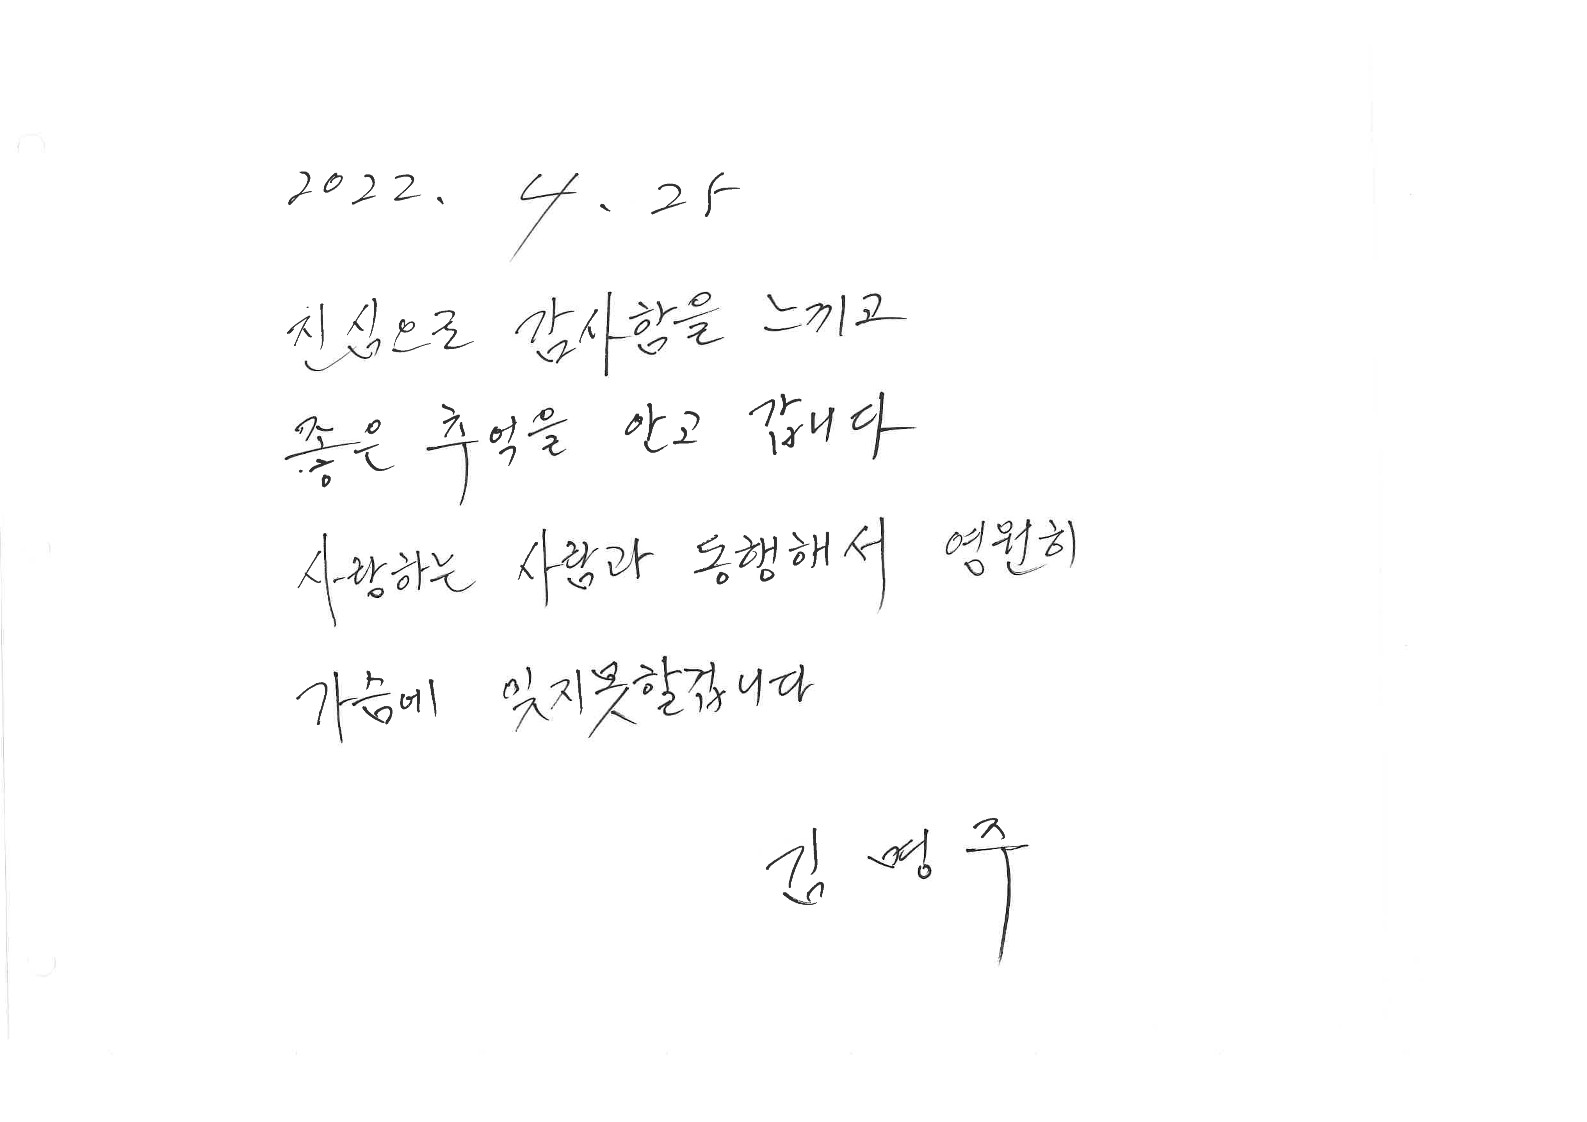 2022. 4. 25
진심으로 감사함을 느끼고
좋은 추억을 안고 갑니다
사랑하는 사람과 동행해서 영원히
가슴에 잊지못할겁니다
김명주